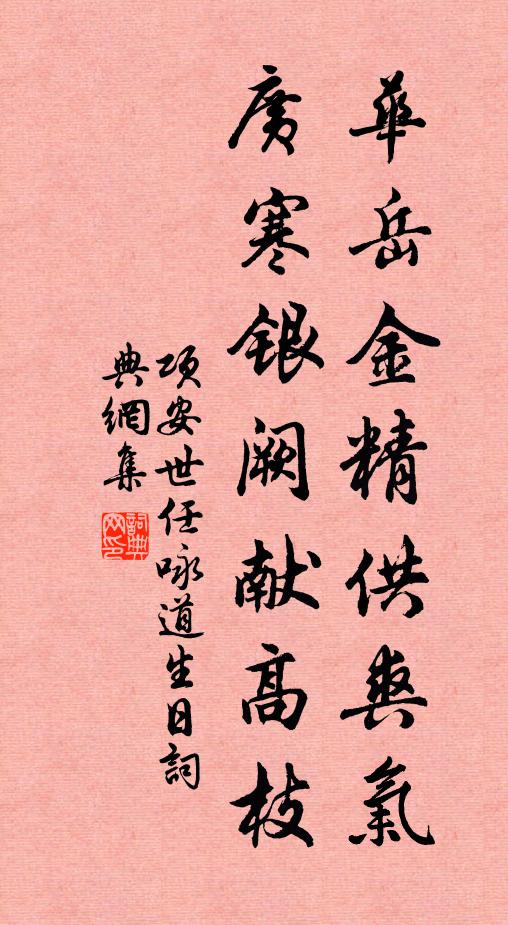 華岳金精供爽氣
廣寒銀阙献高枝
项安世任咏道生日詞
典網集
詞典网印